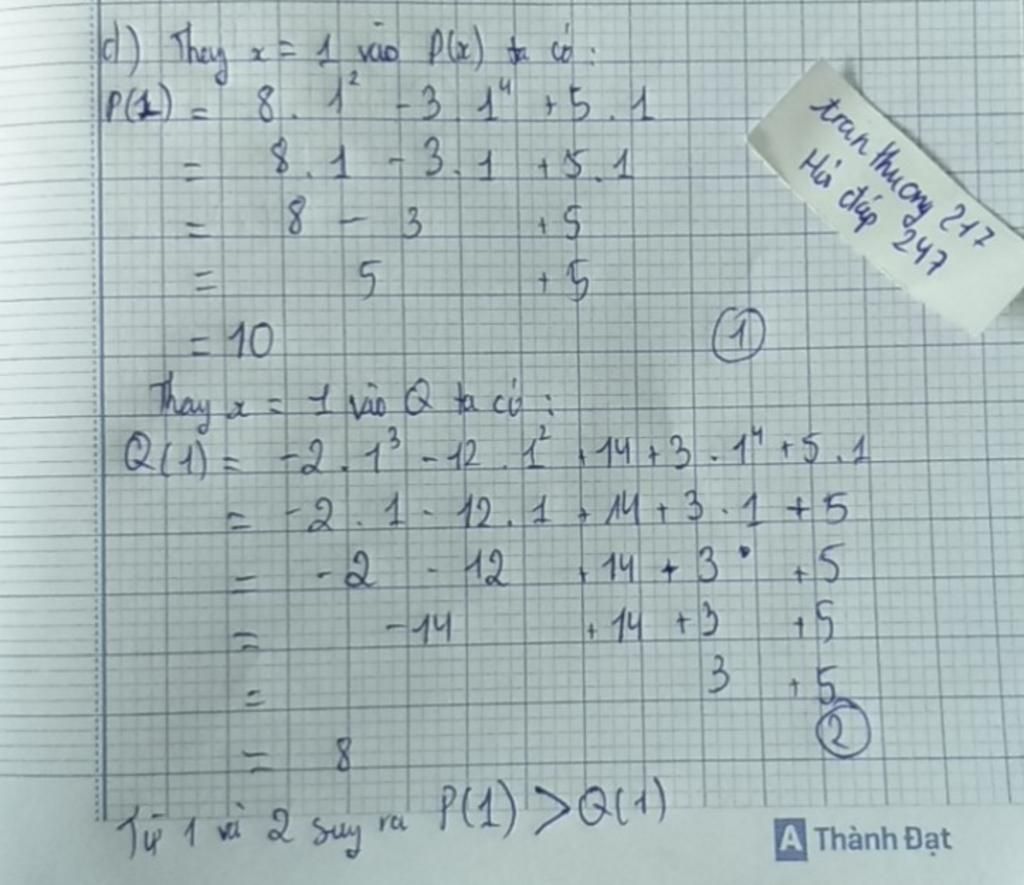 d) Thay x = 1 vào P(x) ta có:
P(1) = 8 . 1² - 3 . 1⁴ + 5 . 1
= 8 . 1 - 3 . 1 + 5 . 1
= 8 - 3 + 5
= 5 + 5
= 10
①
Thay x = 1 vào Q ta có:
Q(1) = -2 . 1³ - 12 . 1² + 14 + 3 . 1⁴ + 5 . 1
= -2 . 1 - 12 . 1 + 14 + 3 . 1 + 5
= -2 - 12 + 14 + 3 + 5
= -14 + 14 + 3 + 5
= 3 + 5
②
= 8
Từ 1 và 2 suy ra P(1) > Q(1)
tran thuong 217
Hỏi đáp 247
A Thành Đạt